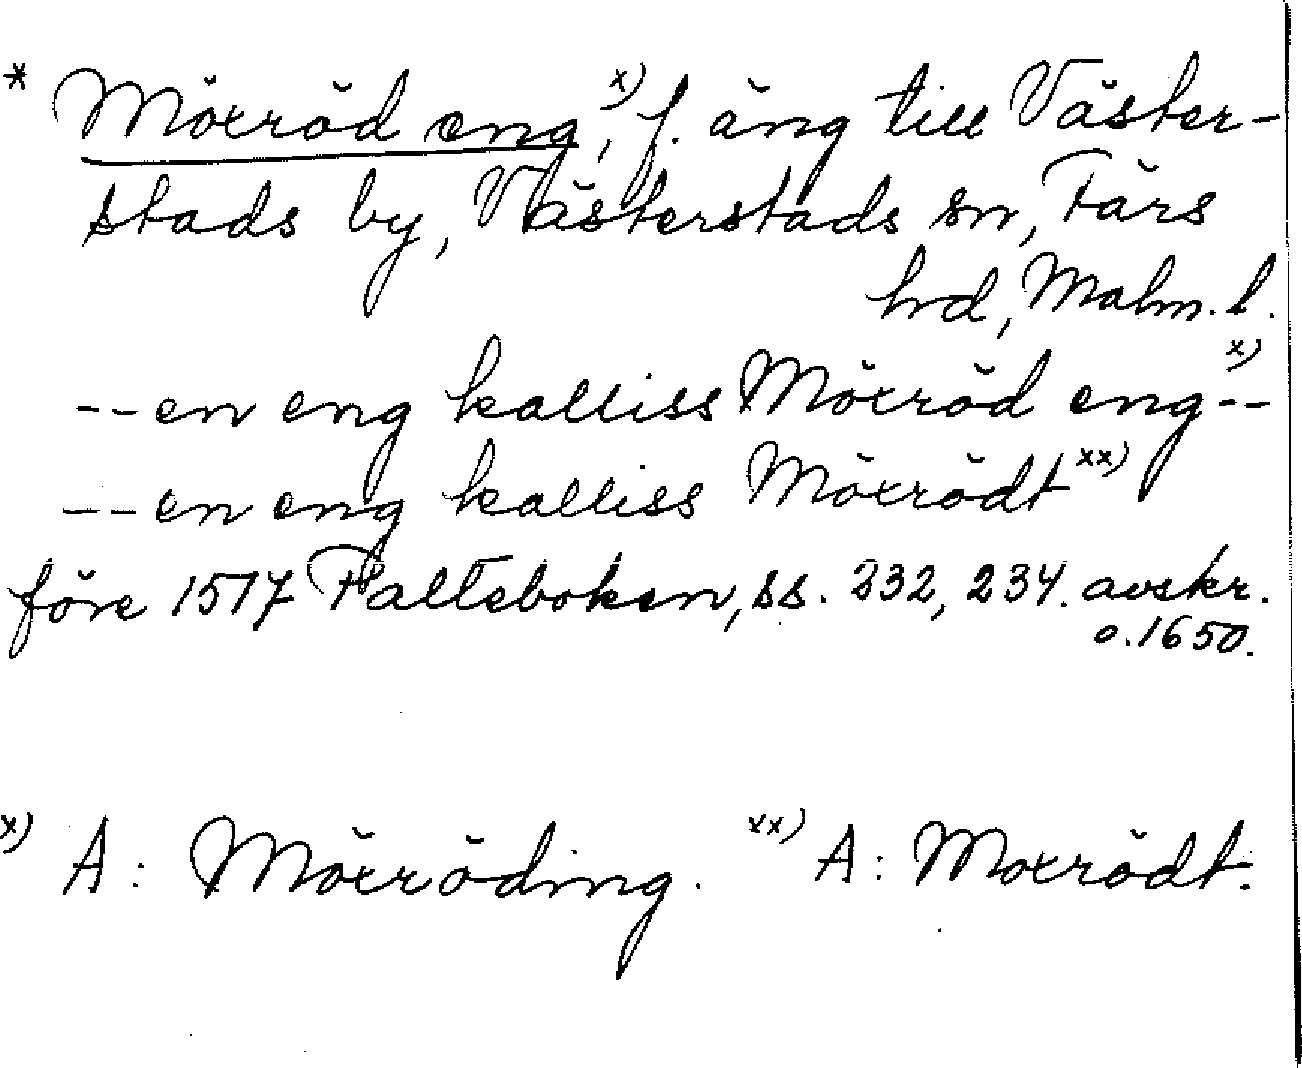 * Möxröd eng,ˣ⁾ f. äng till Väster-
stads by, Västerstads sn, Färs
hrd, Malm. l.
--en eng kalliss Möxröd engˣ⁾--
--en eng kalliss Möxrödtˣˣ⁾
före 1517 Palteboken, ss. 232, 234. avskr.
o. 1650.
x) A: Möxröding. xx) A: Moxrödt.